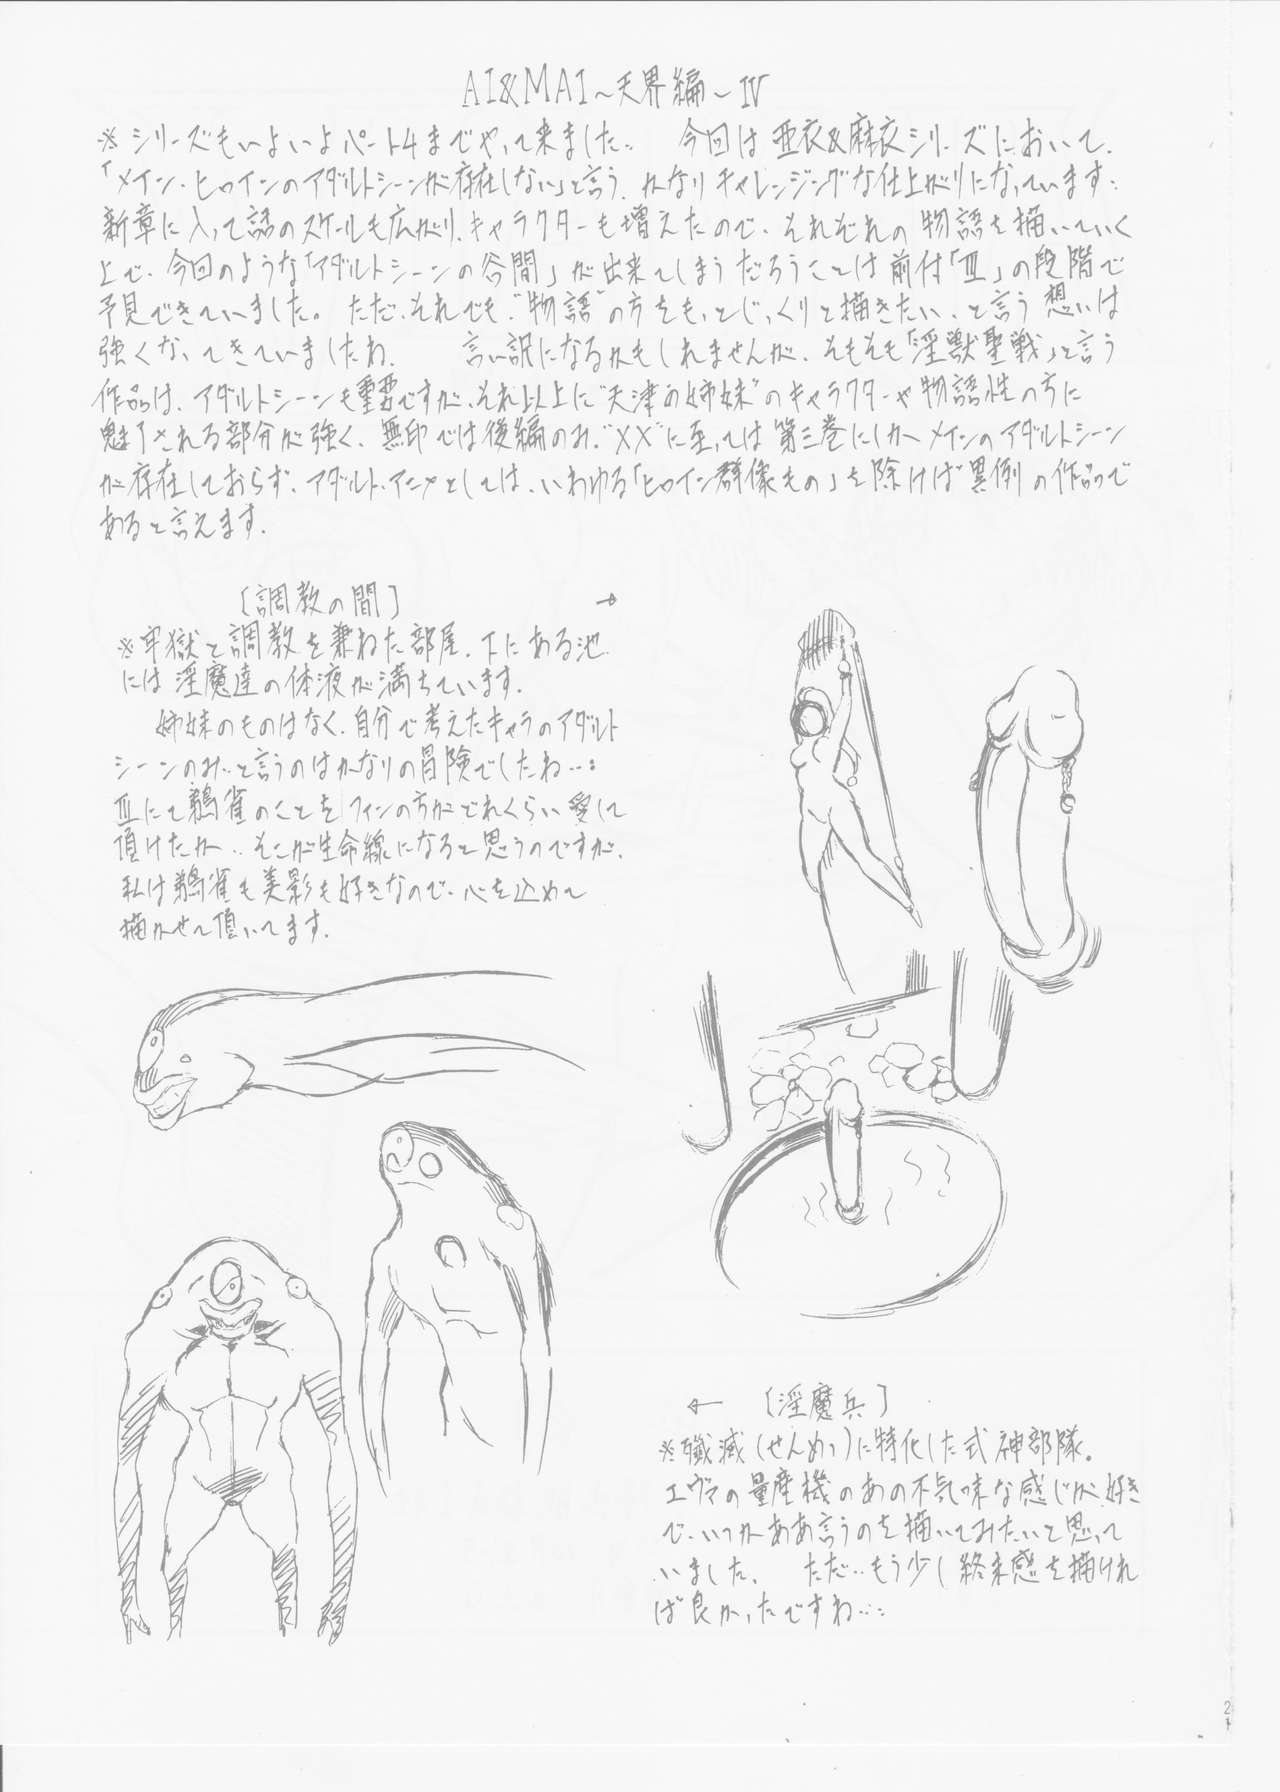 AI&MAI～天界編～Ⅳ
※シリーズもいよいよパート4までやって来ました‥ 今回は亜衣&麻衣シリーズにおいて、
「メイン・ヒロインのアダルトシーンが存在しない」と言う、かなりチャレンジングな仕上がりになっています‥
新章に入って話のスケールも広がり、キャラクターも増えたので、それぞれの物語を描いていく
上で、今回のような「アダルトシーンの谷間」が出来てしまうだろうことは前付「Ⅲ」の段階で
予見できていました。 ただ、それでも“物語”の方をもっとじっくりと描きたい、と言う想いは
強くなってきていましたね、 言い訳になるかもしれませんが、そもそも「淫獣聖戦」と言う
作品は、アダルトシーンも重要ですが、それ以上に“天津の姉妹”のキャラクターや物語性の方に
魅了される部分が強く、無印では後編のみ、“XX”に至っては第三巻にしかメインのアダルトシーン
が存在しておらず、アダルト・アニメとしては、いわゆる「ヒロイン群像もの」を除けば異例の作品で
あると言えます.
[調教の間] →
※牢獄と調教を兼ねた部屋、下にある池
には淫魔達の体液が満ちています.
姉妹のものはなく、自分で考えたキャラのアダルト
シーンのみ‥と言うのはかなりの冒険でしたね…:
Ⅲにて鵺雀のことをファンの方がどれくらい愛して
頂けたか‥そこが生命線になると思うのですが、
私は鵺雀も美影も好きなので、心を込めて
描かせて頂いてます.
← [淫魔兵]
※殲滅(せんめつ)に特化した式神部隊。
エヴァの量産機のあの不気味な感じが好き
で、いつかああ言うのを描いてみたいと思って
いました、 ただ‥もう少し終末感を描けれ
ば良かったですね…:
21